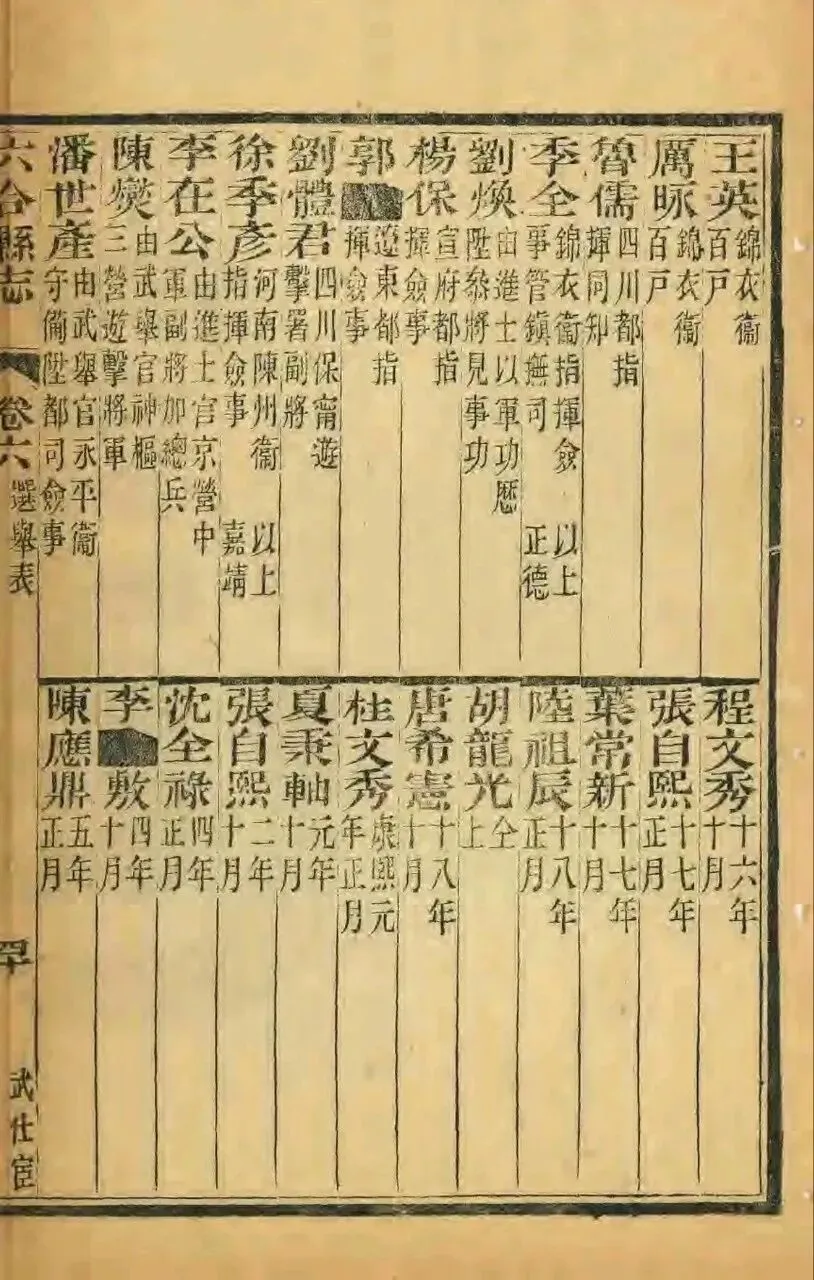 王英錦衣衞百戶
厲昹錦衣衞百戶
魯儒四川都指揮同知
季全錦衣衞指揮僉事管鎮撫司 以上正德
劉煥由進士以軍功歷陞叅將見事功
楊保宣府都指揮僉事
郭遼東都指揮僉事
劉體君四川保甯遊擊署副將
徐季彥河南陳州衞指揮僉事 以上嘉靖
李在公由進士官京營中軍副將加總兵
陳爕由武舉官神樞三營遊擊將軍
潘世產由武舉官永平衞守備陞都司僉事
程文秀十六年十月
張自熙十七年正月
葉常新十七年十月
陸祖辰十八年正月
胡龍光仝上
唐希憲十八年十月
桂文秀康熙元年正月
夏秉軸元年十月
張自熙二年十月
沈全祿四年正月
李敷四年十月
陳應鼎五年正月
六合縣志 卷六 選舉表 武仕宦